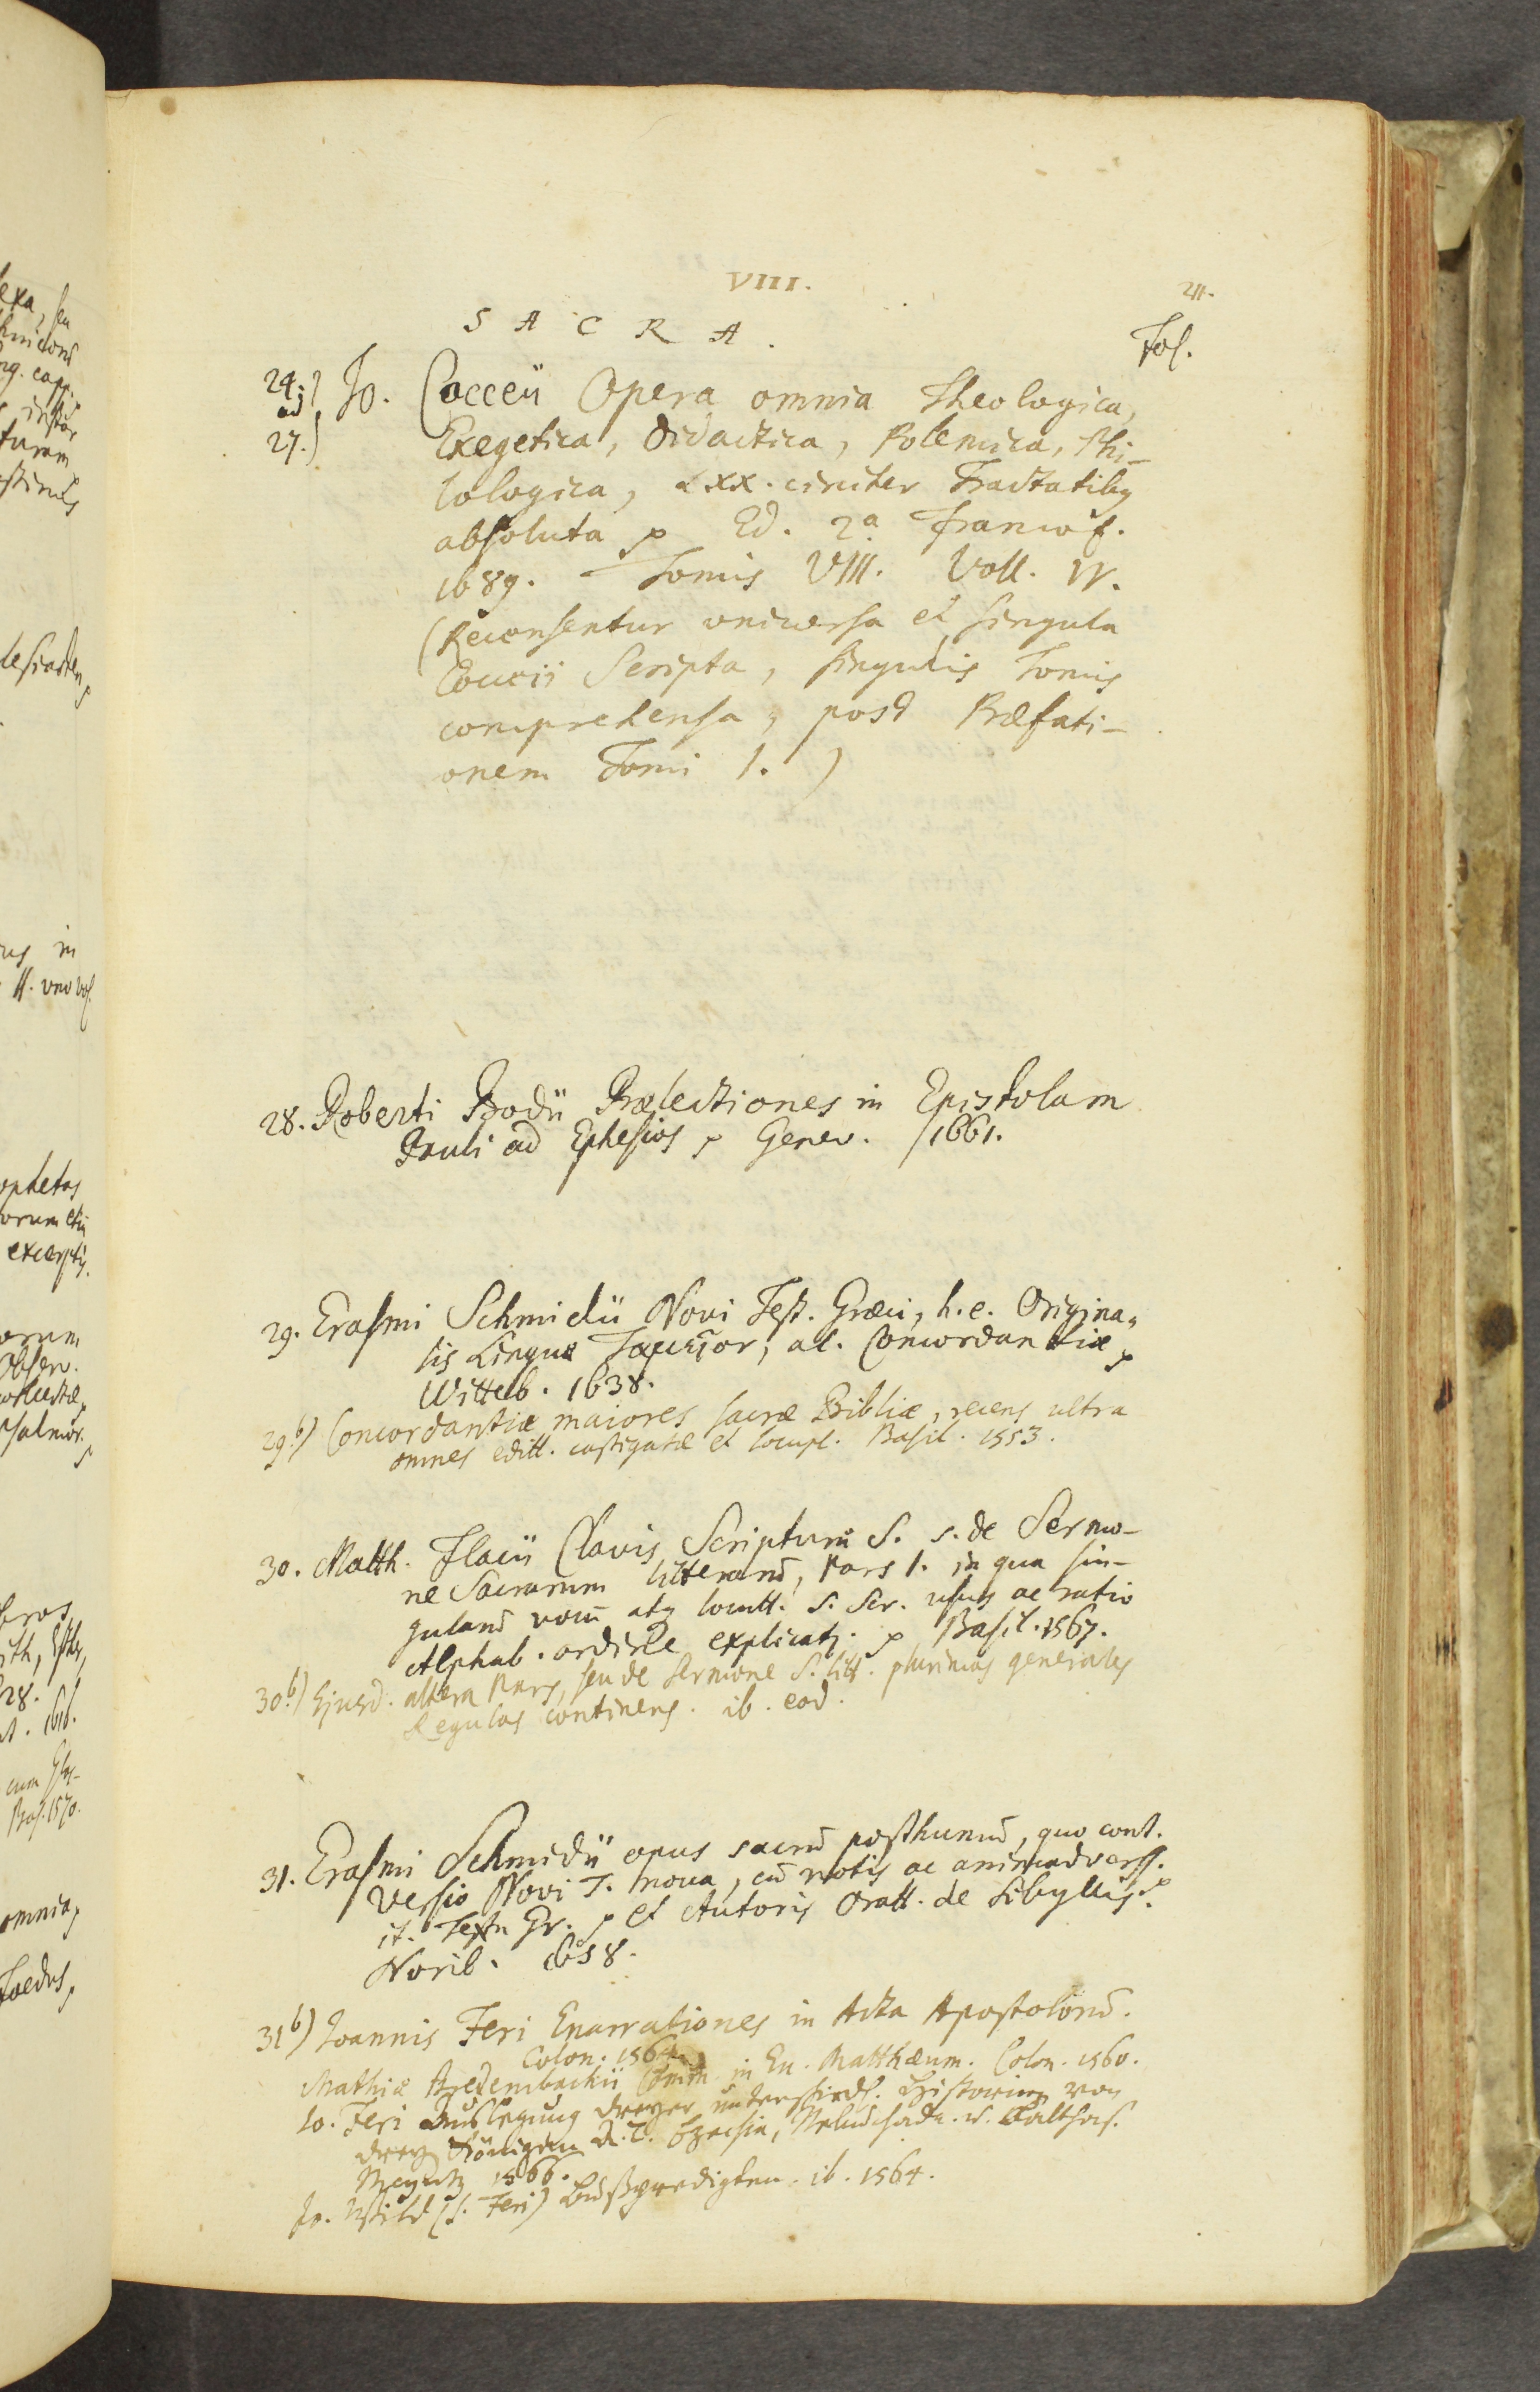 VIII.
21.
SACRA.
Fol.
24.)
ad
27.)
Jo. Cocceii Opera omnia Theologica,
Exegetica, Didactica, Polemica, Phi-
lologica, LXX. circiter Tractatibq
absoluta p Ed. 2a Francof.
1689. Tomis VIII. Voll. IV.
(Recensentur universa et singula
Cocceii Scripta, singulis Tomis
comprehensa, post Præfati-
onem Tomi I.)
28. Roberti Bodii Prælectiones in Epistolam
Pauli ad Ephesios p Genev. 1661.
29. Erasmi Schmidii Novi Test. Græci, h.e. Origina-
lis Linguæ Ταμεῖον, al. Concordantiæ p
Witteb. 1638.
29.b) Concordantiæ maiores sacræ Bibliæ, recens ultra
omnes editt. castigatæ et locupl. Basil. 1553.
30. Matth. Flacii Clavis Scripturæ S. s. de Sermo-
ne Sacrarum litterarū, Pars I. in qua sin-
gularū vocū atq locutt. S. Scr. usus ac ratio
Alphab. ordine explicatr. p Basil. 1567.
30.b) Ejusd. altera Pars, seu de sermone S. litt. plurimas generales
Regulas continens. ib. eod.
31. Erasmi Schmidii opus sacrū posthumū, quo cont.
Versio Novi T. nova, cū notis ac animadverss.
it. Textu Gr. p et Autoris Oratt. de Sibyllis. p
Norib. 1658.
31b) Joannis Feri Enarrationes in Acta Apostolorū.
Colon. 1567.
Mathiæ Bredenbachii Comm. in Ev. Matthæum. Colon. 1560.
Jo. Feri Auslegung dreyer unterschiedl. Historien von
drey Königen A.T. Ezechia, u. Balthas.
Meyntz 1566.
Jo. Wild (s. Feri) Bußpredigten. ib. 1564.